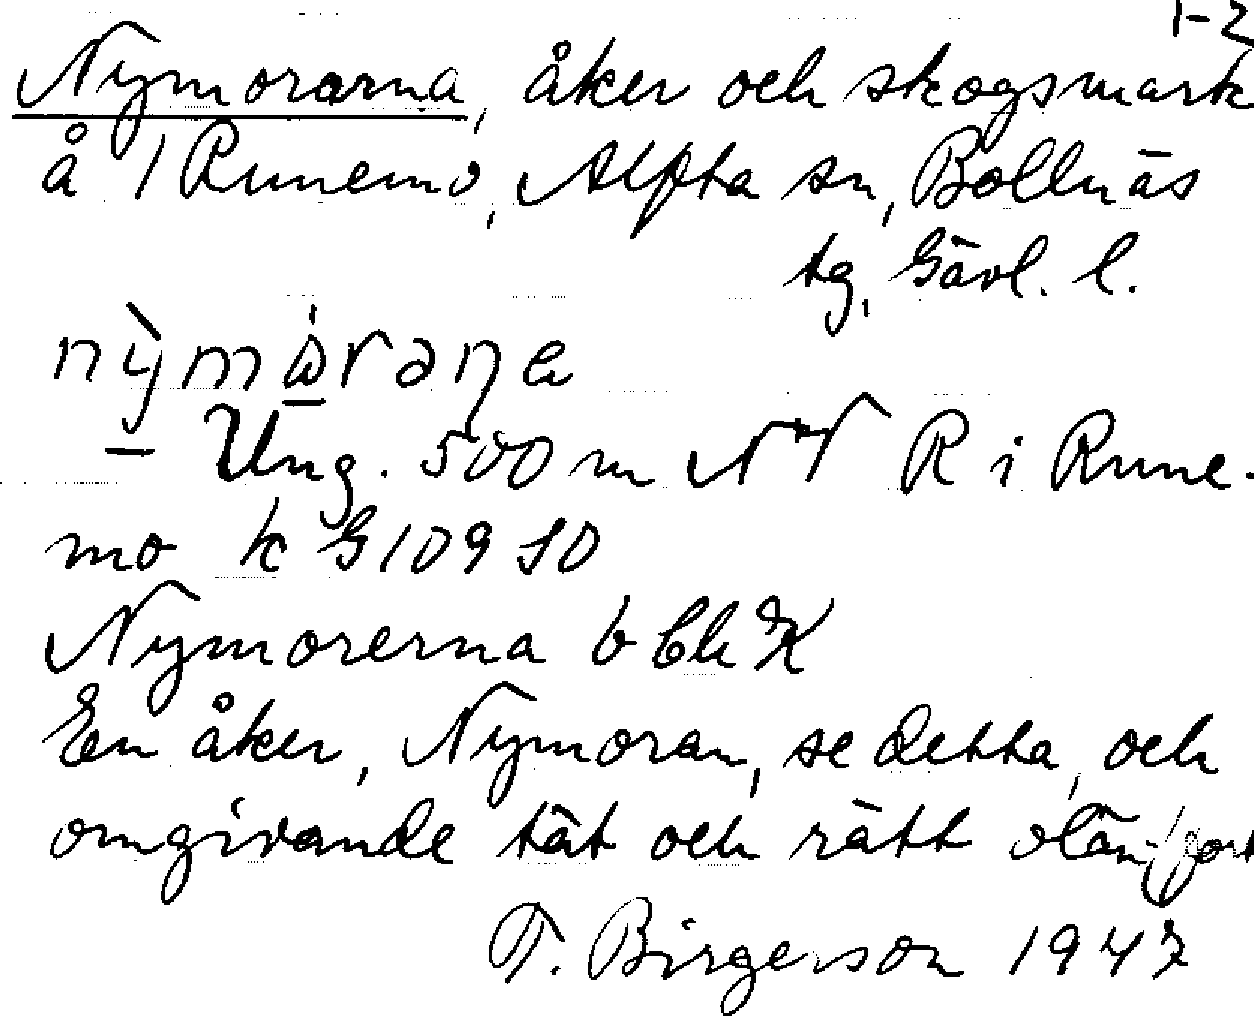 1-2
Nymorarna, åker och skogsmark
å 1 Runemo, Alfta sn, Bollnäs
tg, Gävl. l.
nỳmɷ̀raɳa
– Ung. 500 m NV R i Rune-
mo k G 109 SO
Nymorerna b
En åker, Nymoran, se detta, och
omgivande tät och rätt olän- (fort
T. Birgerson 1947